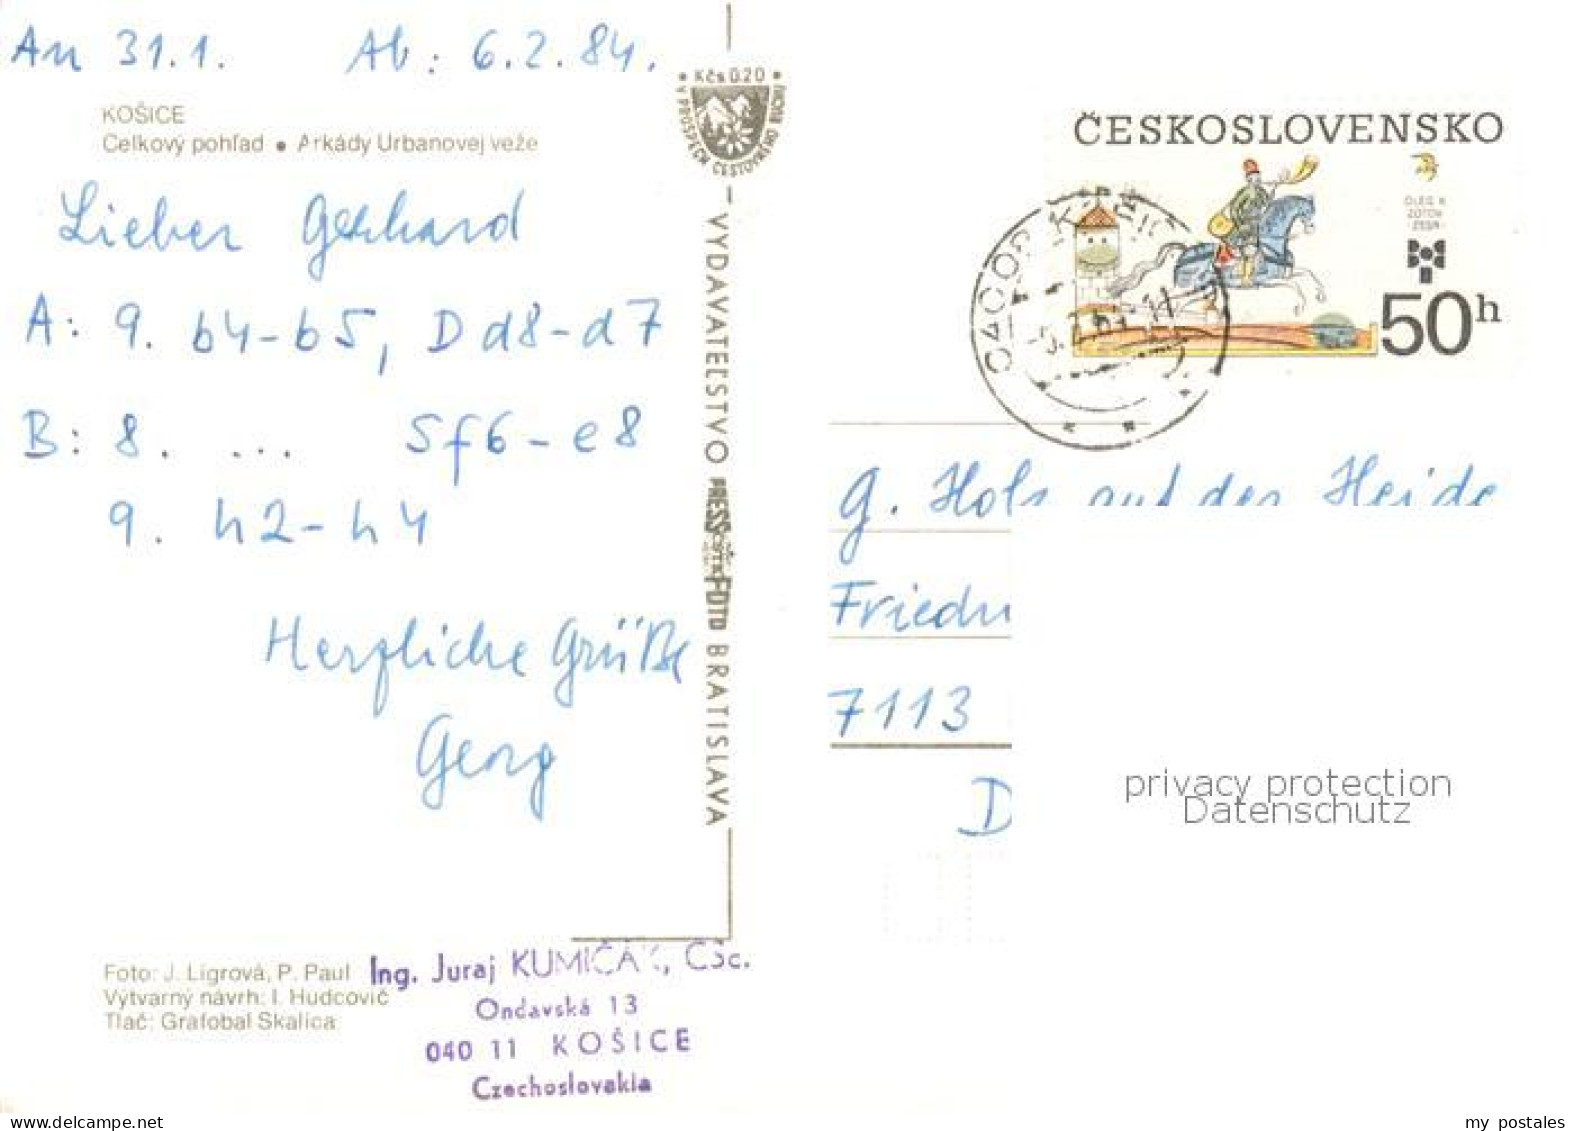 An 31.1. Ab: 6.2.84.
KOŠICE
Celkový pohľad • Arkády Urbanovej veže
Lieber Gerhard
A: 9. b4-b5, D d8-d7
B: 8. ... Sf6-e8
9. h2-h4
Herzliche Grüße
Georg
Foto: J. Ligrová, P. Paul
Výtvarný návrh: I. Hudcovič
Tlač: Grafobal Skalica
Ing. Juraj KUMIČÁK, CSc.
Ondavská 13
040 11 KOŠICE
Czechoslovakia
• Kčs 0.20 •
V PROSPECH CESTOVNÉHO RUCHU
VYDAVATEĽSTVO PRESSFOTO BRATISLAVA
ČESKOSLOVENSKO
OLEG K.
ZOTOV
ZSSR
50h
G. Holz auf der Heide
7113
D
privacy protection
Datenschutz
my postales
www.delcampe.net